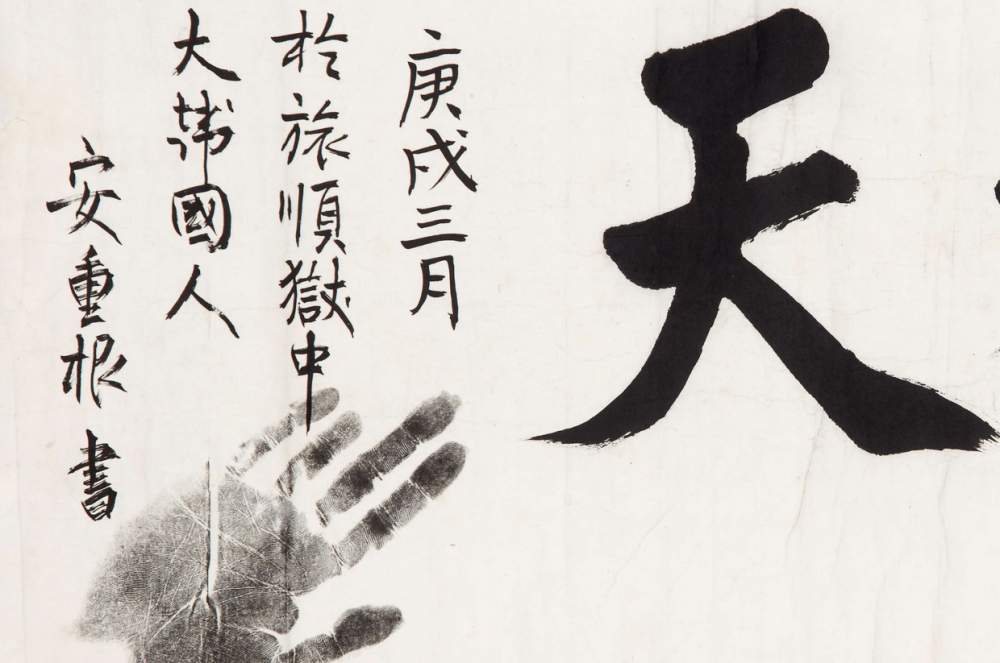 天
庚戌三月
於旅順獄中
大韓國人
安重根 書